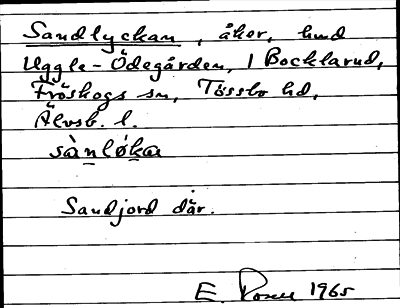 Sandlyckan, åker, hmd
Uggle-Ödegården, 1 Bocklarud,
Fröskogs sn, Tössbo hd,
Älvsb. l.
sànlø̀ka
Sandjord där.
E. 1965